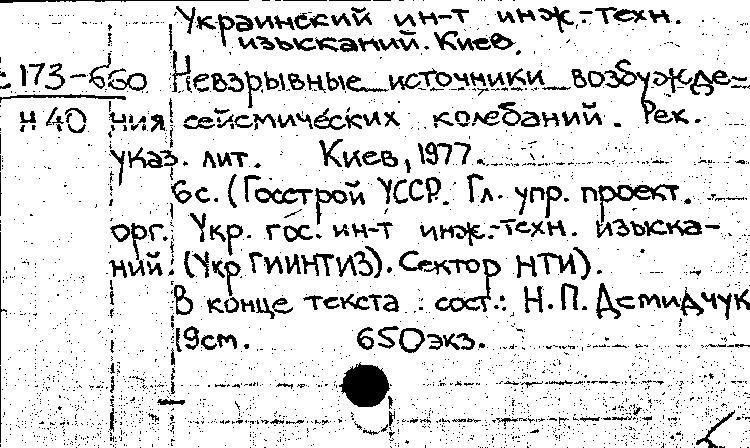 Украинский ин-т инж.-техн.
изысканий. Киев.
173-660 Невзрывные источники возбужде-
Н40 ния сейсмических колебаний. Рек.
указ. лит. Киев, 1977.
6с. (Госстрой УССР. Гл. упр. проект.
орг. Укр. гос. ин-т инж.-техн. изыска-
ний. (Укр ГИИНТИЗ). Сектор НТИ).
В конце текста : сост.: Н.П. Демидчук
19см. 650экз.